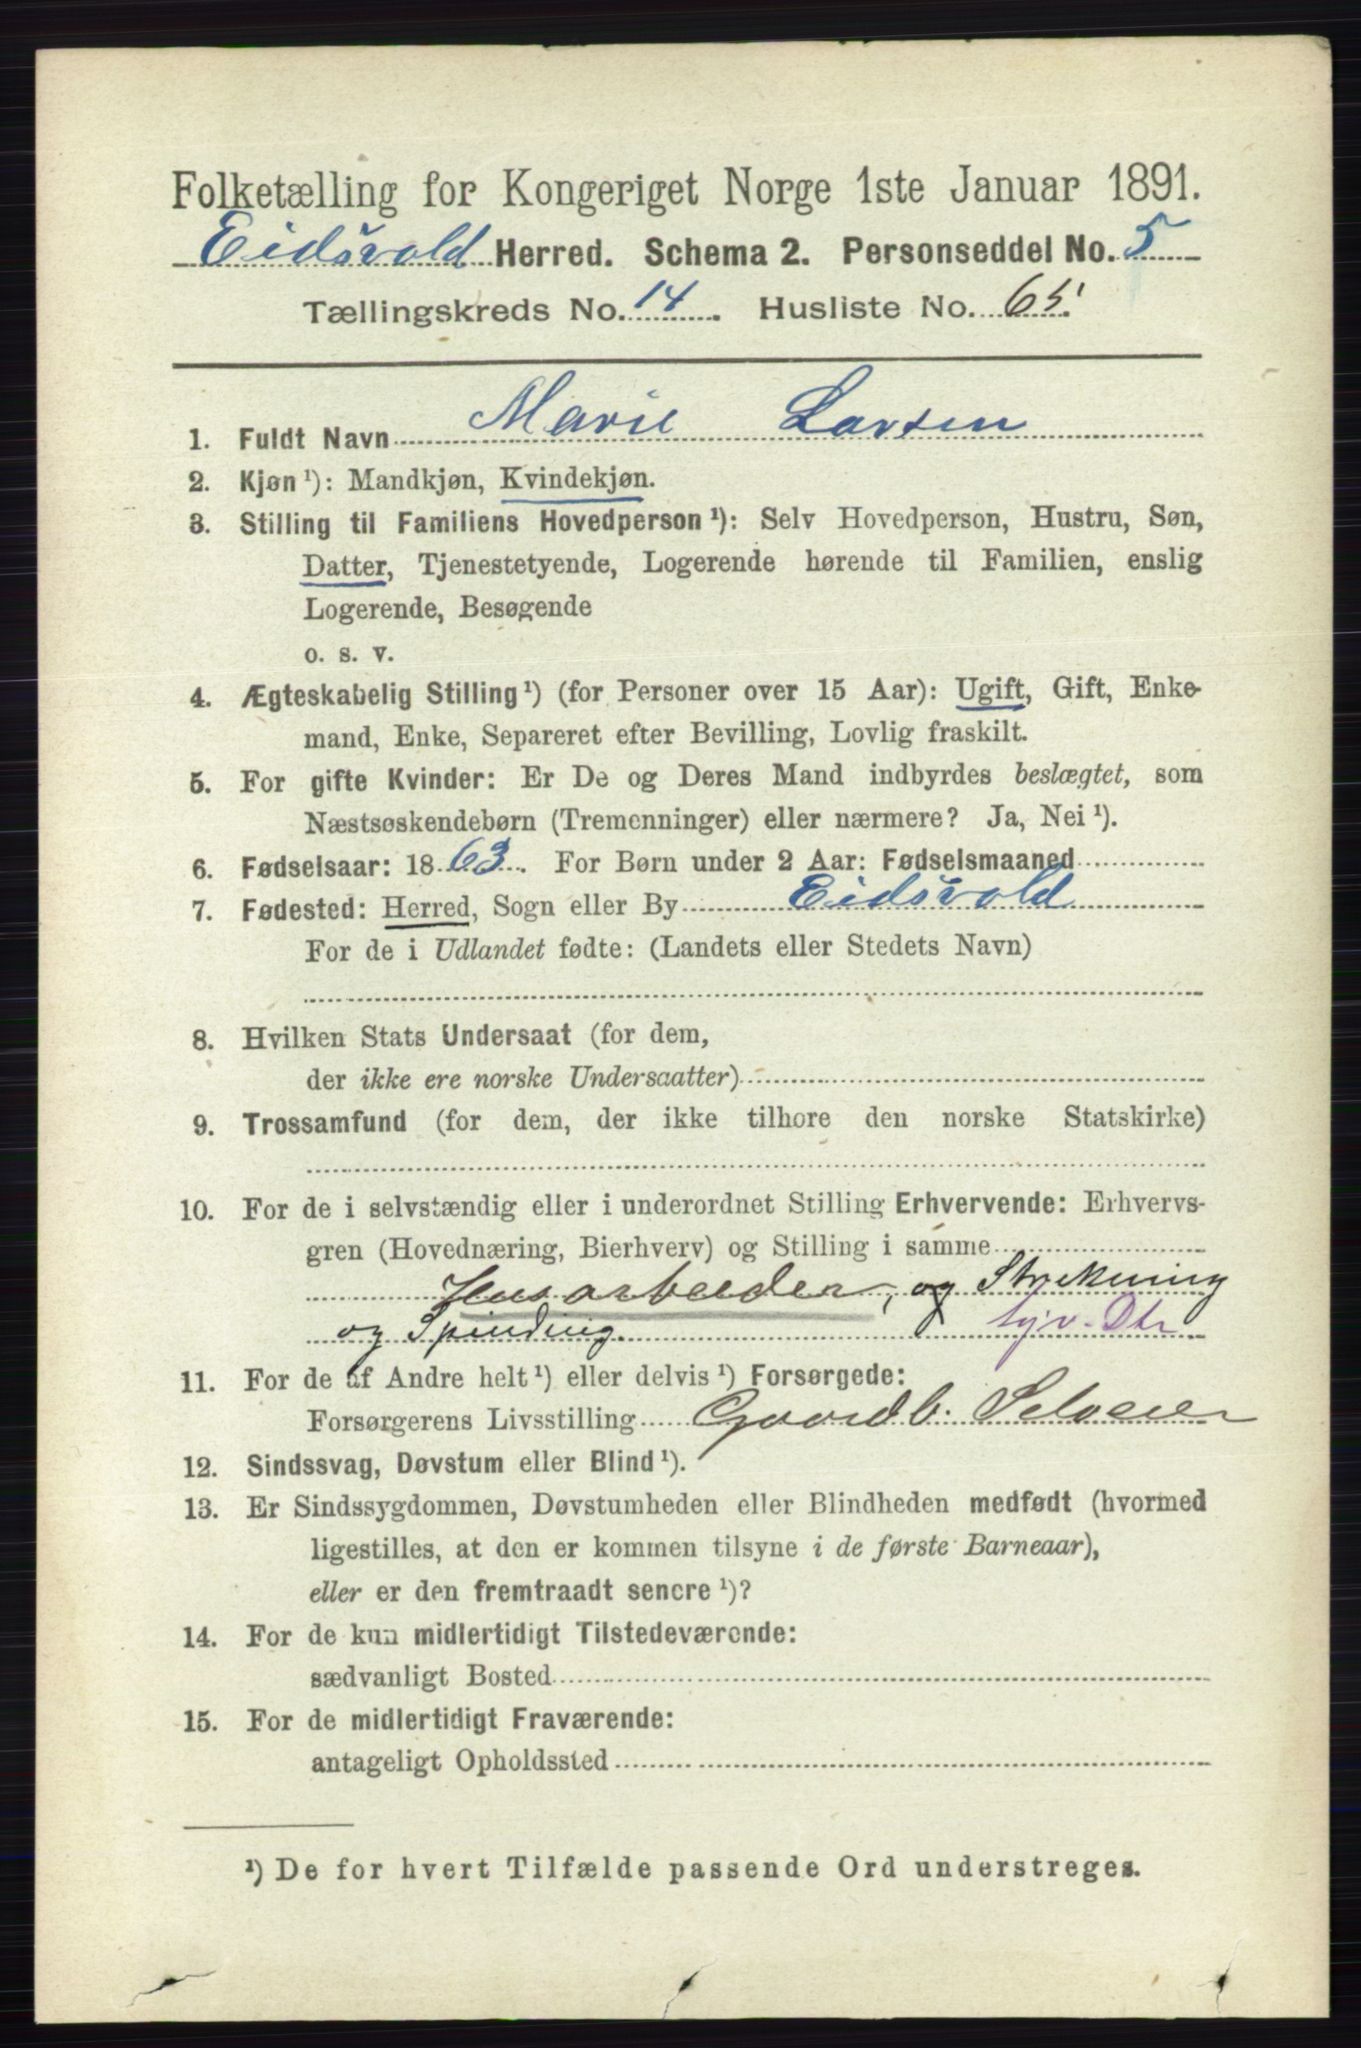 Folketælling for Kongeriget Norge 1ste Januar 1891.
Eidsvold Herred. Schema 2. Personseddel No. 5
Tællingskreds No. 14. Husliste No. 65.
1. Fuldt Navn Marie Larsen
2. Kjøn ¹): Mandkjøn, Kvindekjøn.
3. Stilling til Familiens Hovedperson ¹): Selv Hovedperson, Hustru, Søn,
Datter, Tjenestetyende, Logerende hørende til Familien, enslig
Logerende, Besøgende
o. s. v.
4. Ægteskabelig Stilling ¹) (for Personer over 15 Aar): Ugift, Gift, Enke-
mand, Enke, Separeret efter Bevilling, Lovlig fraskilt.
5. For gifte Kvinder: Er De og Deres Mand indbyrdes beslægtet, som
Næstsøskendebørn (Tremenninger) eller nærmere? Ja, Nei ¹).
6. Fødselsaar: 1863. For Børn under 2 Aar: Fødselsmaaned
7. Fødested: Herred, Sogn eller By Eidsvold
For de i Udlandet fødte: (Landets eller Stedets Navn)
8. Hvilken Stats Undersaat (for dem,
der ikke ere norske Undersaatter)
9. Trossamfund (for dem, der ikke tilhøre den norske Statskirke)
10. For de i selvstændig eller i underordnet Stilling Erhvervende: Erhvervs-
gren (Hovednæring, Bierhverv) og Stilling i samme
Husarbeider, og Strikning
og Spinding.
11. For de af Andre helt ¹) eller delvis ¹) Forsørgede:
Forsørgerens Livsstilling Gaardb. Selveier
12. Sindssvag, Døvstum eller Blind ¹).
13. Er Sindssygdommen, Døvstumheden eller Blindheden medfødt (hvormed
ligestilles, at den er kommen tilsyne i de første Barneaar),
eller er den fremtraadt senere ¹)?
14. For de kun midlertidigt Tilstedeværende:
sædvanligt Bosted
15. For de midlertidigt Fraværende:
antageligt Opholdssted
¹) De for hvert Tilfælde passende Ord understreges.